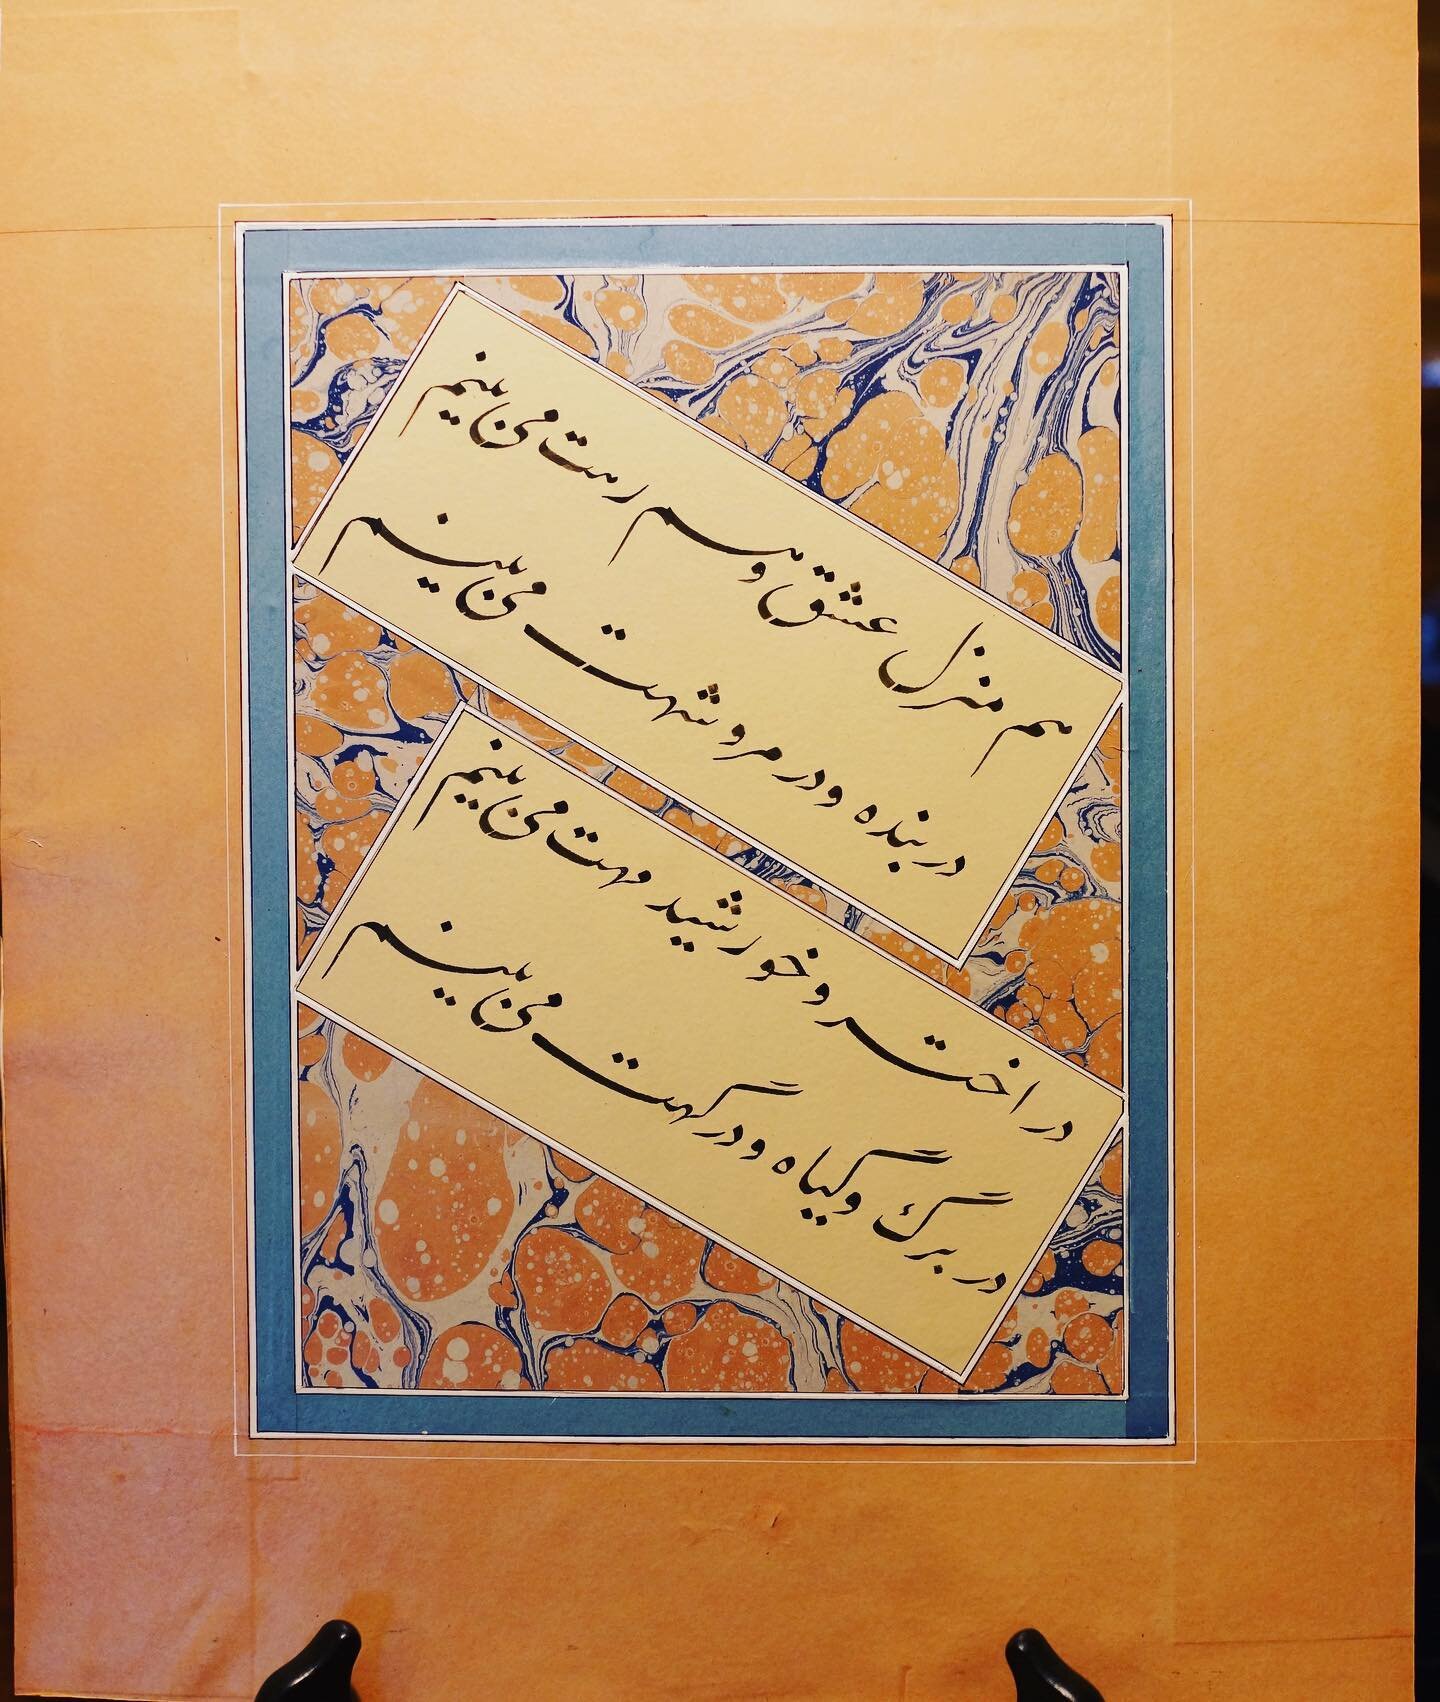 هم منزل عشق و هم رهت می‌بینم
در بنده و در مروشهت می‌بینم
در اختر و خورشید مهت می‌بینم
در برگ و گیاه و در گهت می‌بینم